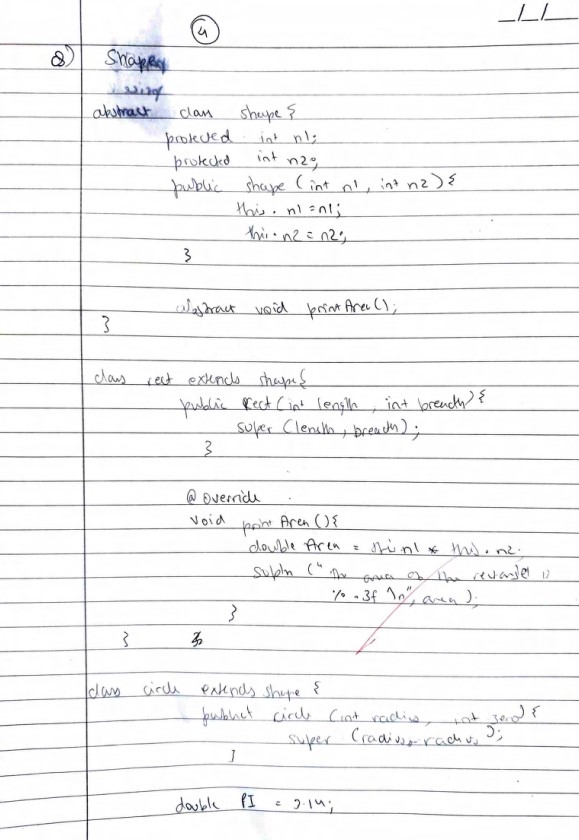 4
_/_/_
8) Shapes
abstract class shape {
protected int n1;
protected int n2;
public shape (int n1, int n2) {
this. n1 = n1;
this. n2 = n2;
}
abstract void printArea();
}
class rect extends shape {
public Rect (int length, int breadth) {
super (length, breadth);
}
@ override
void print Area () {
double Area = this. n1 * this. n2;
sopln (" The area of the rectangle is
% .3f \n", area );
}
}
class circle extends shape {
public circle (int radius, int zero) {
super (radius, radius );
}
double PI = 3.14;